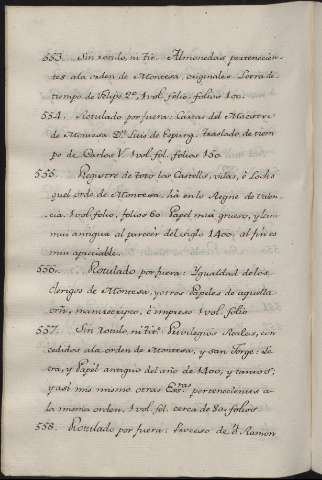 553. Sin rotulo, ni tit. Almonedas pertenecien-
tes ala orden de Montesa, originales Letra di
tiempo de Felipe 2º, 1 vol. folio. folios 100.
554. Rotulado por fuera: Cartas del Maestre
de Montesa Dn. Luis de Espurg. traslado de tiem-
po de Carlos V. 1 vol. fol. folios 150
555. Registre de tots los Castells, vilas, é Lochs
quel orde de Montesa, ha en lo Regne de Valen-
cia. 1 vol. folio, folios 60 Papel mui grueso, y
mui antigua al parecèr del siglo 1400. al fin es
mui apreciable.
556. Rotulado por fuera: Igualdad de los
Clerigos de Montesa, y otros Papeles de aquella
orn, manuscripto, é impreso 1 vol. folio
557. Sin Rotulo, ni titº. Privilegios Reales, con-
cedidos ala orden de Montesa, y San Jorge: Le-
tra, y Papel antiguo del año de 1400, y tantos,
y asi mismo otras Esras. pertenecientes a
la misma orden, 1 vol. fol. cerca de 80. folios
558. Rotulado por fuera: Proceso de Dn. Ramon